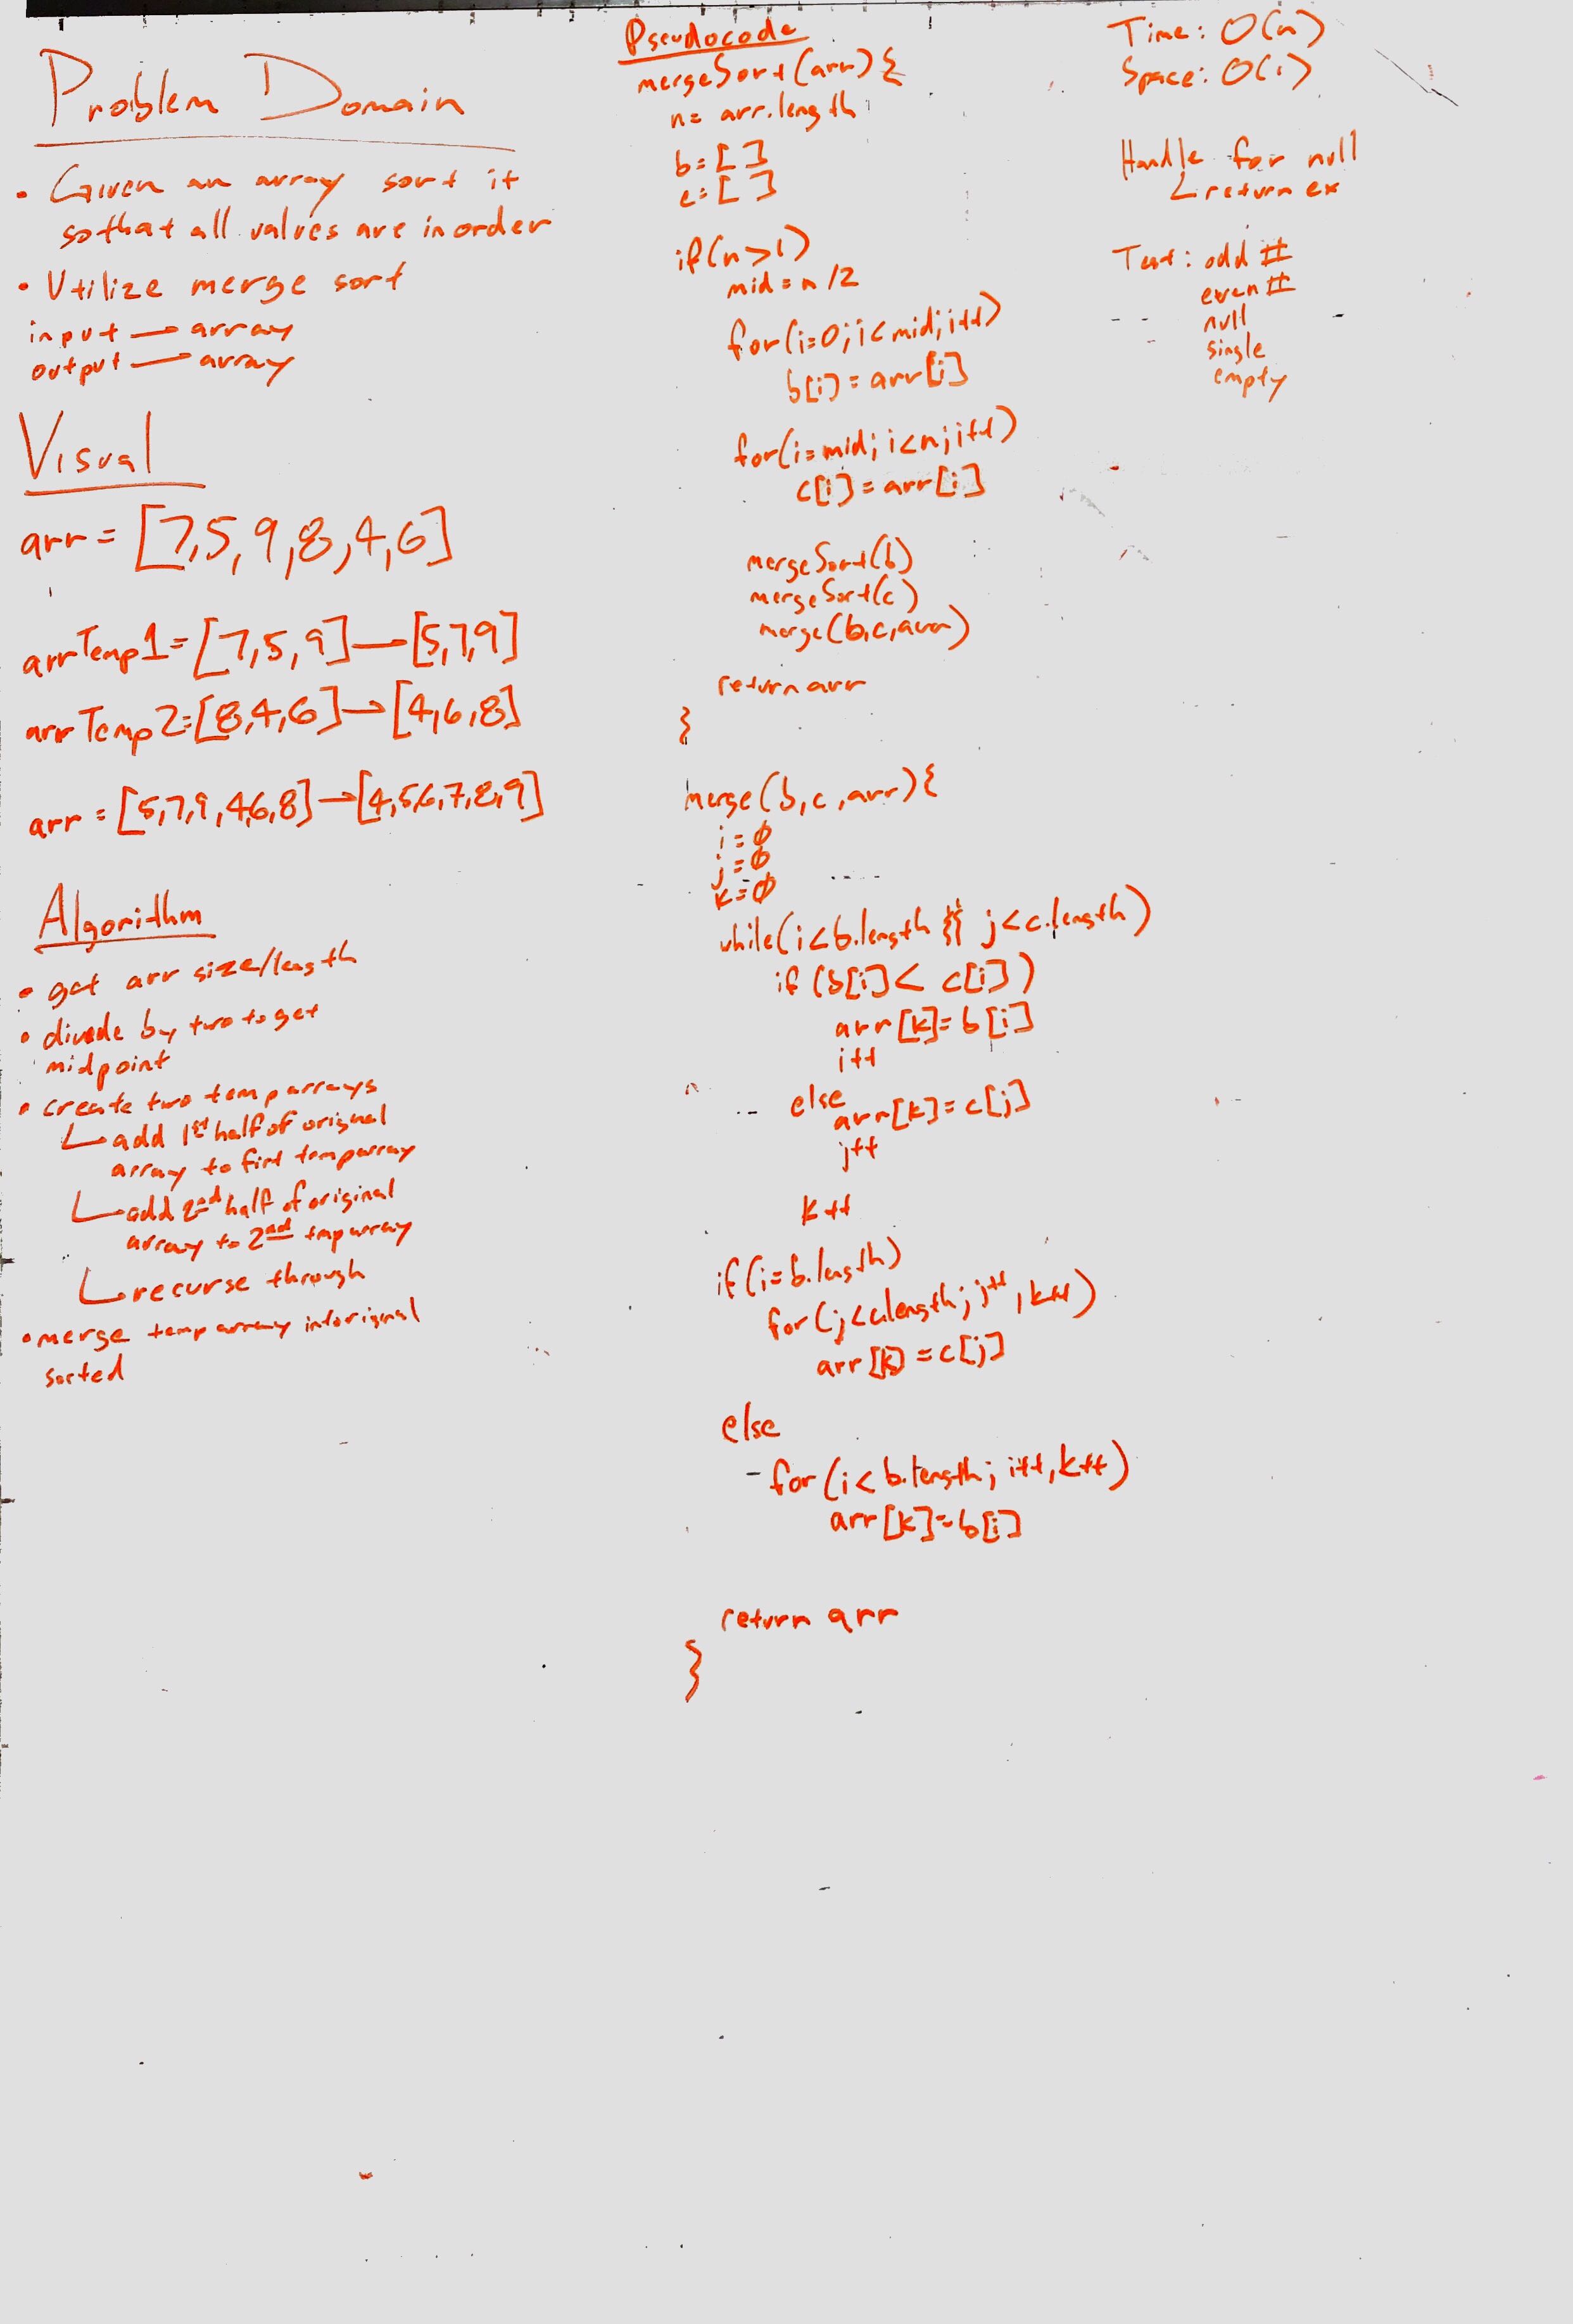 Problem Domain
• Given an array sort it
so that all values are in order
• Utilize merge sort
input → array
output → array
Visual
arr = [7,5,9,8,4,6]
arrTemp1 = [7,5,9] → [5,7,9]
arrTemp2 = [8,4,6] → [4,6,8]
arr = [5,7,9,4,6,8] → [4,5,6,7,8,9]
Algorithm
• get arr size/length
• divide by two to get
midpoint
• create two temp arrays
add 1st half of orignal
array to first temparray
add 2nd half of original
array to 2nd tmp array
recurse through
• merge temp array into original
sorted
Pseudocode
mergeSort(arr) {
n = arr.length
b = [ ]
c = [ ]
if(n>1)
mid = n/2
for(i=0; i<mid; i++)
b[i] = arr[i]
for(i=mid; i<n; i++)
c[i] = arr[i]
mergeSort(b)
mergeSort(c)
merge(b,c,arr)
return arr
}
merge(b,c,arr){
i = 0
j = 0
k = 0
while(i<b.length && j<c.length)
if (b[i] < c[i])
arr[k] = b[i]
i++
else
arr[k] = c[j]
j++
k++
if(i=b.length)
for(j<c.length; j++, k++)
arr[k] = c[j]
else
for(i<b.length; i++, k++)
arr[k] = b[i]
return arr
}
Time: O(n)
Space: O(1)
Handle for null
return ex
Test: odd #
even #
null
single
empty